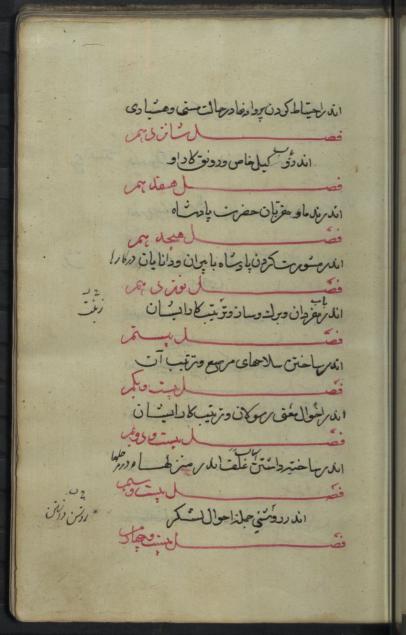 اندر احتیاط کردن پروانها در حالت مستی و هشیاری
فصل شانزدهم
اندر وکیل خاص و رونق کار او
فصل هفدهم
اندر ندما و مقربان حضرت پادشاه
فصل هیجدهم
اندر مشورت کردن پادشاه با پیران و دانایان در کارها
فصل نوزدهم
اندر مفردان و برک و ساز و ترتیب کار ایشان
فصل بیستم
اندر ساختن سلاحهای مرصع و ترتیب آن
فصل بیست و یکم
اندر احوال رسولان و ترتیب کار ایشان
فصل بیست و دویم
اندر ساخته داشتن علف اندر منزلها
فصل بیست و سیم
اندر روشنی جمله احوال لشکر
فصل بیست و چهارم